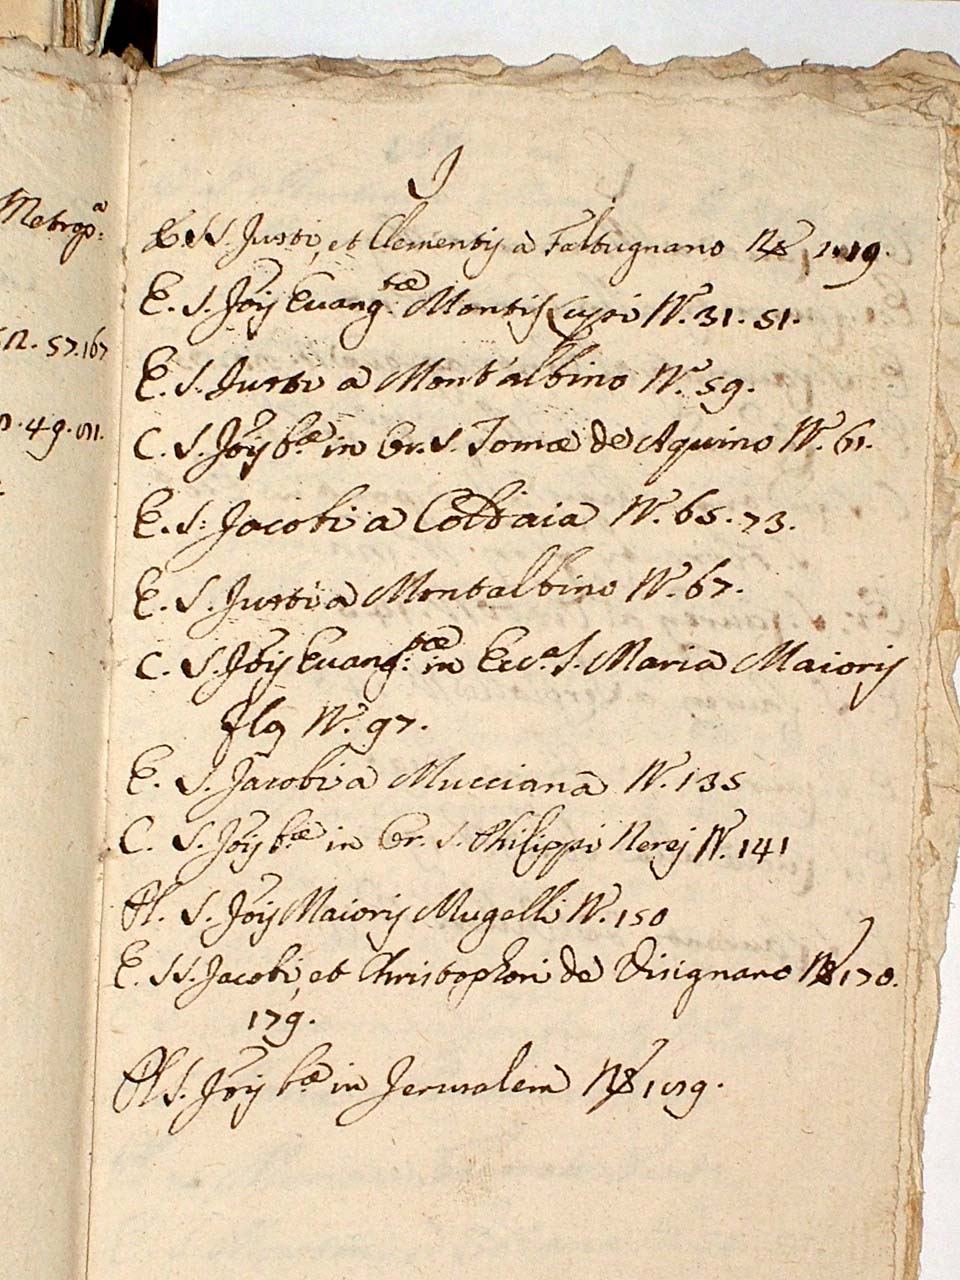 Metrop:a
52. 57. 167
49. 511.
J
E. SS. Justi, et Clementis a Faltugnano No 1119.
E. S. Jois Evang:tæ Montis Lupi No. 31. 51.
E. S. Justi a Mont'albino No. 59.
C. S. Jois b.æ in Or. S. Tomæ de Aquino No. 61.
E. S: Jacobi a Coltbaia No. 65. 73.
E. S. Justi a Montalbino No. 67.
C. S. Jois Evang:tæ in Ecc.a S. Maria Maioris
flg No. 97.
E. S. Jacobi a Mucciana No. 135
C. S. Jois b.æ in Or. S. Philippi Nerej No. 141
Pl. S. Jois Maioris Mugelli No. 150
E. SS. Jacobi, et Christophori de Disignano No 170.
179.
Pl S. Jois b.æ in Jerusalem No 1519.